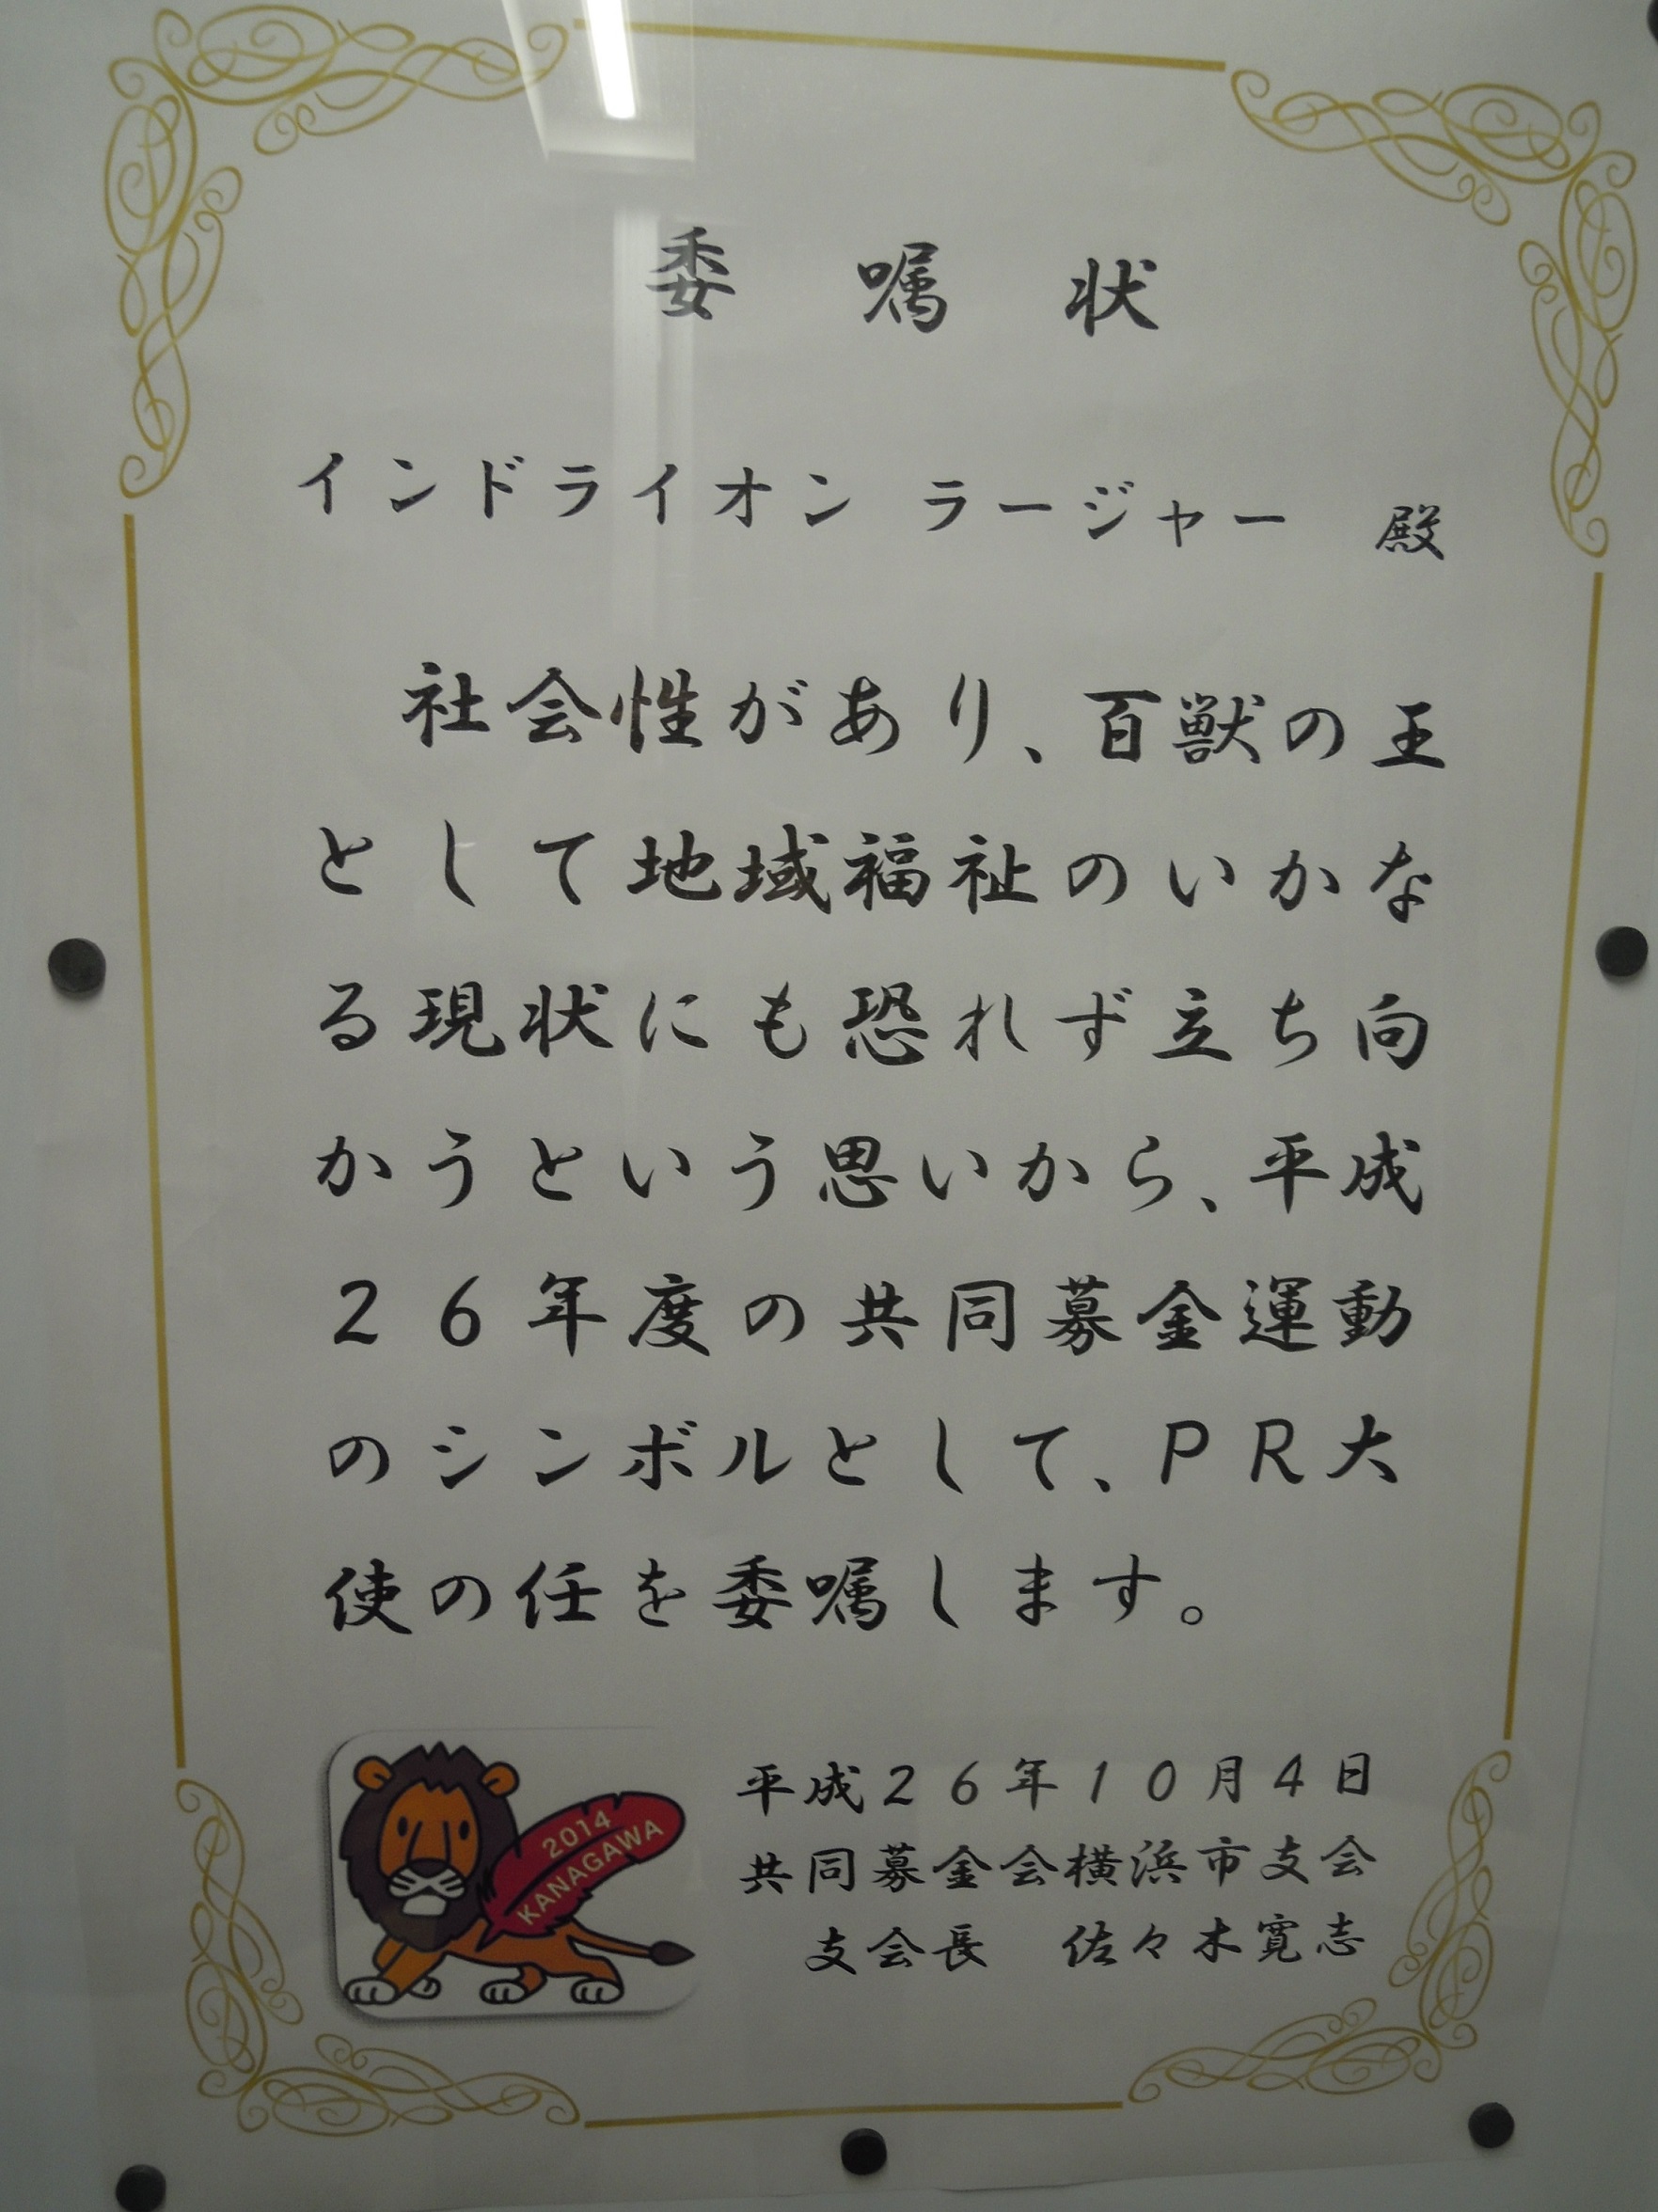 委嘱状
インドライオン ラージャー 殿
社会性があり、百獣の王
として地域福祉のいかな
る現状にも恐れず立ち向
かうという思いから、平成
２６年度の共同募金運動
のシンボルとして、ＰＲ大
使の任を委嘱します。
2014
KANAGAWA
平成２６年１０月４日
共同募金会横浜市支会
支会長　佐々木寛志